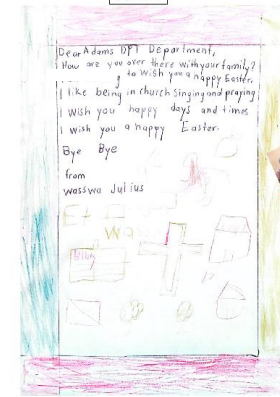 Dear Adams DPT Department,
How are you over there with your family?
to wish you a happy Easter.
I like being in church singing and praying
I wish you happy days and times
I wish you a happy Easter.
Bye Bye
from
wasswa Julius